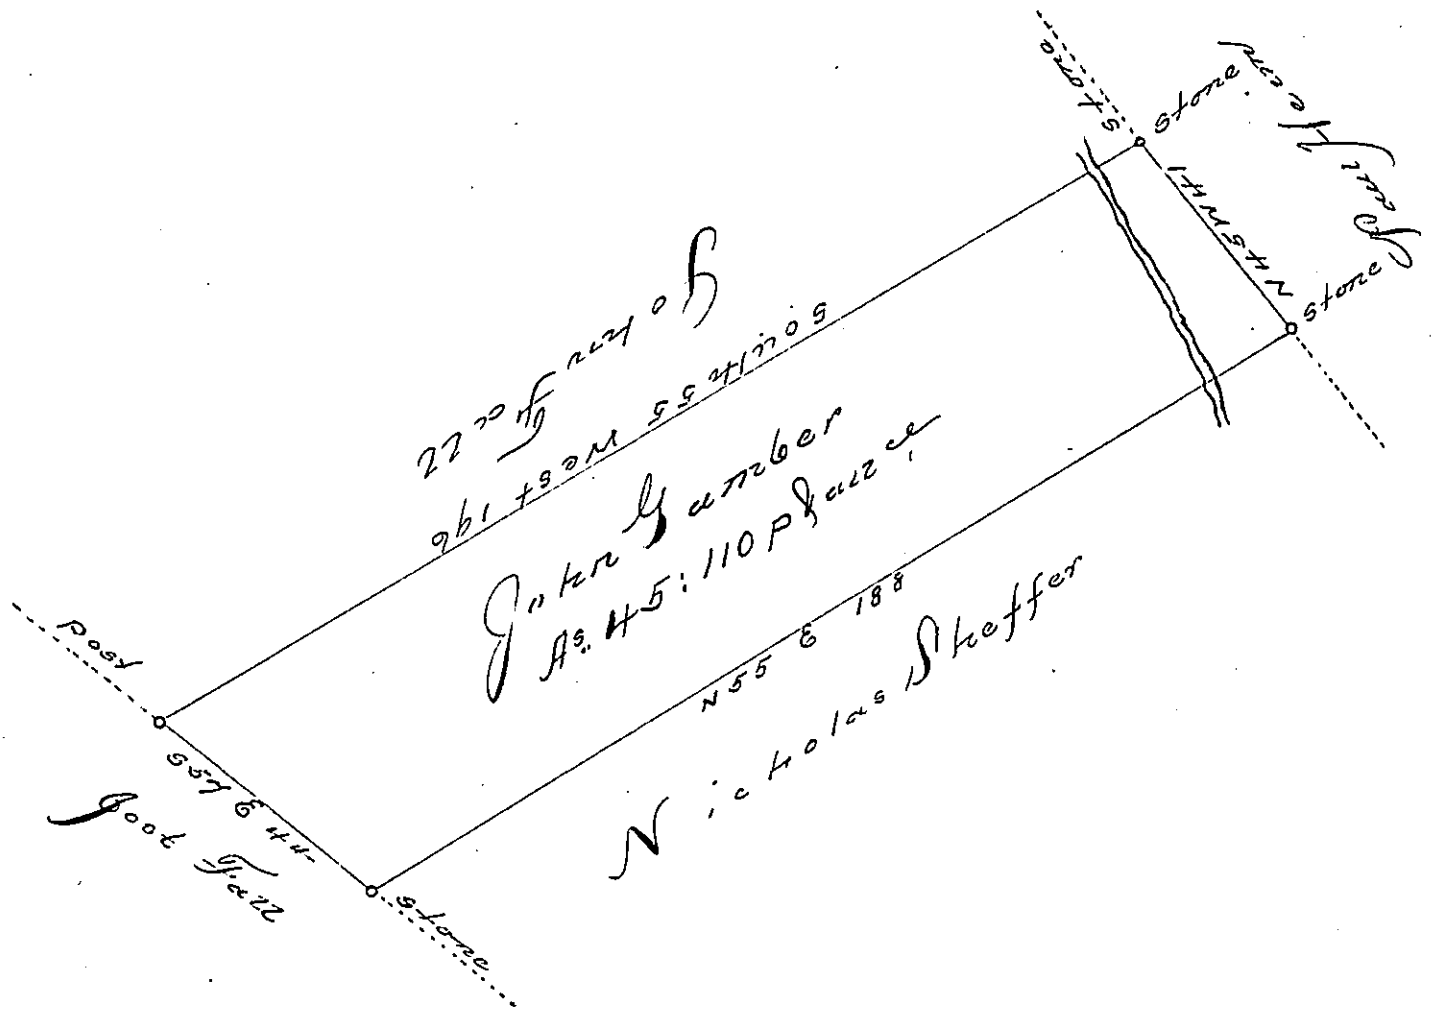 stone
stone
N45W41
stone
John Fall
South 55 West 196
John Gamber
As. 45: 110 P
N55 E 188
Nicholas Sheffer
post
S57 E 44
Foot Fall
stone